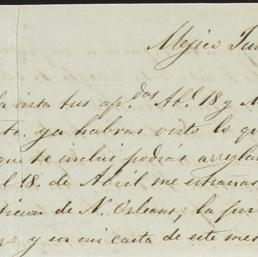 Mejico Jun
la vista tus ap.das Ab.l 18 y M
ti. ya habras visto lo qu
que te inclui podrás arreglar
l 18. de Abril me estrañas
ticias de N.a Orleans, la
rs y en mi carta de este mes